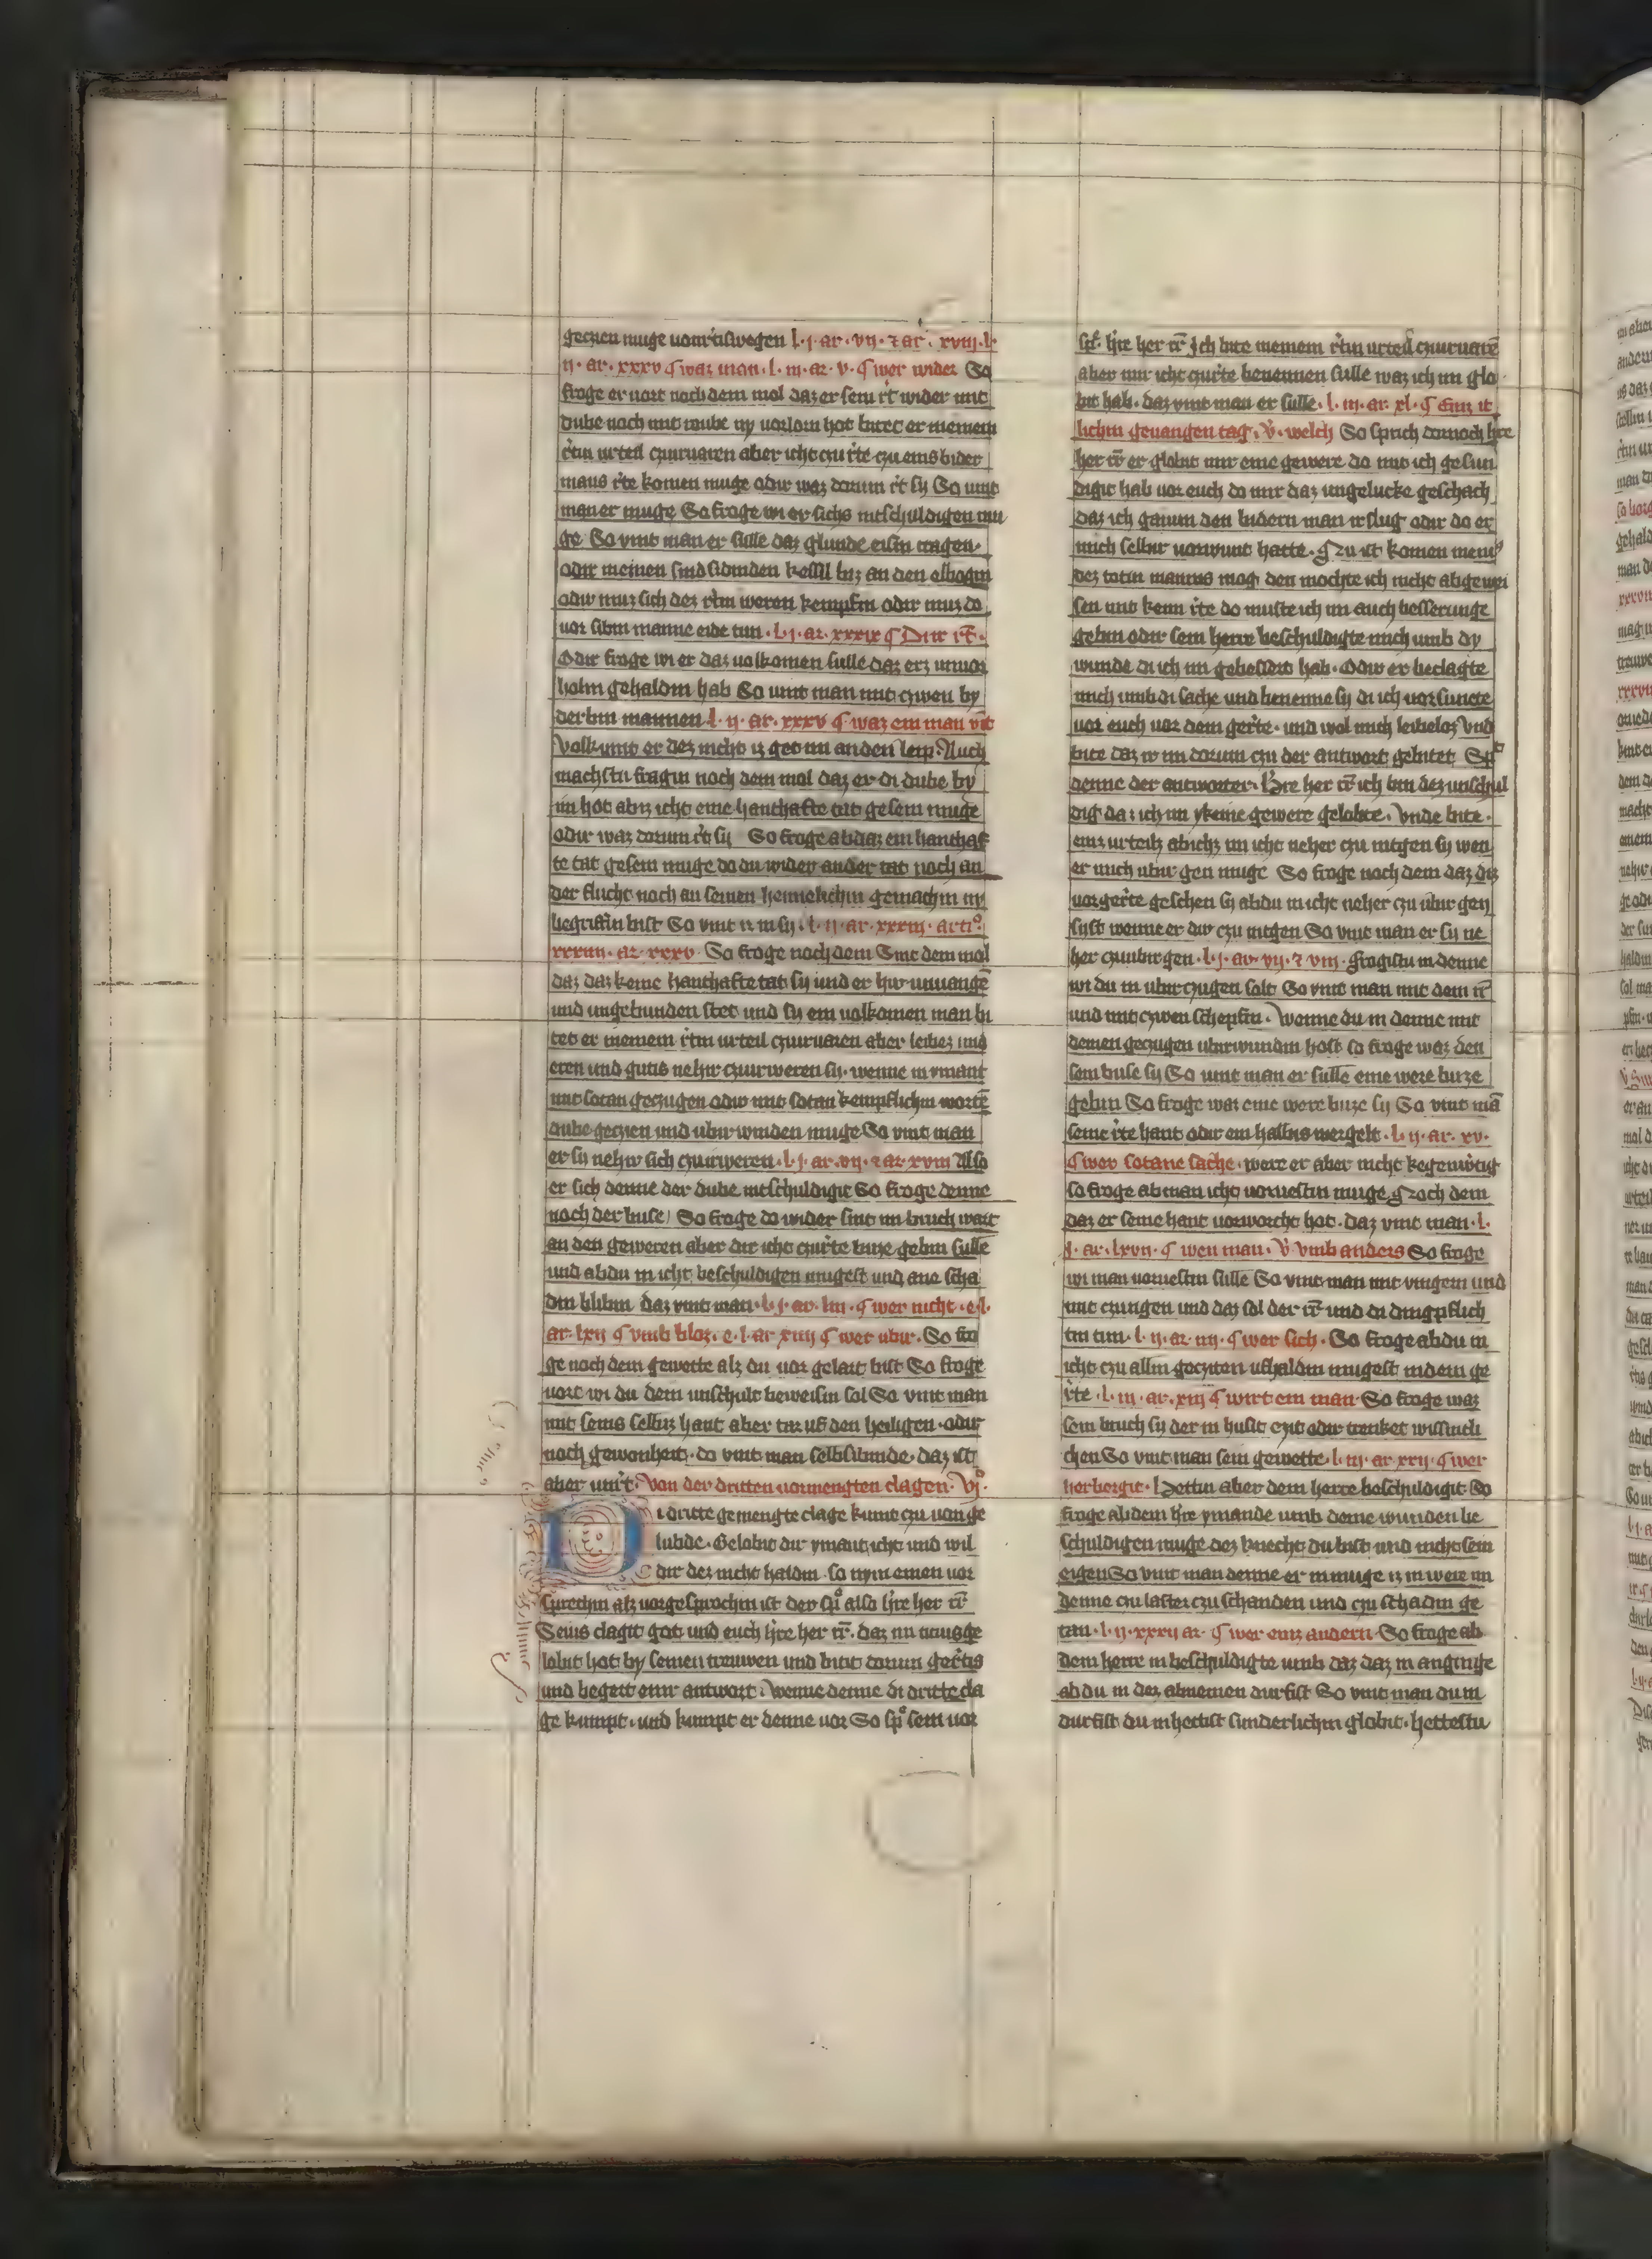 geczien muge vom rt̄iswegen l. j. ar. vij. ⁊ ar. xviij. l.
ij. ar. xxxv ¶ waz man. l. iij. ar. v. ¶ wer wider So
froge er vort noch dem mol daz er sein rt̄ wider mit
dube noch mit roube ny vorlorn hot butet er meinem
rt̄in urteil czuuruaren aber icht czu rt̄e czu eins bider
mans rt̄e komen muge odir waz dorum rt̄ sy So vint
man er muge So froge wi er sichs intschuldigen mu
ge So vint man er sulle daz glunde eisin tragen.
odir in einen sindsibinden kessil biz an den elbogin
odir muz sich dez rt̄in weren kempfin odir muz do
vor sibin manne eide tun. l. j. ar. xxxix ¶ Dir rt̄.
Odir froge wi er daz volkomen sulle daz erz unvor
holin gehaldin hab So vint man mit czwen by
derbin mannen l. ij. ar. xxxv ¶ waz ein man vīt
Volkumt er dez nicht iz get im an den leip. Auch
machstu fragin noch dem mol daz er di dube by
im hot abiz icht eine hanthafte tat gesein muge
odir waz dorum rt̄ sy So froge ab daz ein hanthaf
te tat gesein muge do du wider an der tat noch an
der flucht noch an seinen heimelichin gemachin ny
begriffin bist So vint iz in sy. l. ij. ar. xxxiij. arti⁰.
xxxiiij. ar. xxxv. So froge noch dem Sint dem mol
daz daz keine hanthafte tat sy und er hir unuangē
und ungebunden stet und sy ein volkomen man bi
tet er meinem rt̄in urteil czuuruaren aber leibez und
eren und gutis nehir czuurweren sy. wenne in ymant
mit sotan geczugen odir mit sotan kempflichin wortē
dube geczien und ubirwinden muge So vint man
er sy nehir sich czuirweren. l. j. ar. vij. ⁊ ar. xviij Also
er sich denne der dube intschuldigit So froge denne
noch der buse So froge do wider sint im bruch wart
an den geweren aber dir icht czu rt̄e buze gebin sulle
und ab du in icht beschuldigen mugest und ane scha
din blibin daz vint man. l. j. ar. liij. ¶ wer nicht. e. l.
ar. lxij ¶ vmb bloz. e. l. ar xiiij ¶ wer ubir. So fro
ge noch dem gewette alz du vor gelart bist So froge
vort wi du dein unschult beweisin sol So vint man
mit seins selbiz hant aber tut uf den heiligen. odir
noch gewonheit. do vint man selbsibinde. daz ist
aber unrt̄. Von der dritten vormengten clagen. vj⁰.
Di dritte gemengte clage kumt czu von ge
lubde. Gelobit dir ymant icht und wil
dir dez nicht haldin. so nym einen vor
sprechin alz vorgesprochin ist der sp̊ also h̄re her rr̄
Seius clagit got und euch h̄re her rr̄. daz im titius ge
lobit hot by seinen treuwen und bitit dorum gert̄is
und begert einr antwort. Wenne denne di dritte cla
ge kumpt. und kumpt er denne vor So sp̊ sein vor
sp̄. h̄re her rr̄ Ich bite meinem rt̄in urteil czuuruarē
aber mir icht czu rt̄e benennen sulle waz ich im glo
bit hab. daz vint man er sulle. l. iij. ar. xl. ¶ Einz it
lichin gevangen tag. v̄. welch So sprich dornoch h̄re
her rr̄ er globit mir eine gewere do mit ich gesun
digit hab vor euch do mir daz ungelucke geschach
daz ich gaium den bidern man irslug odir do er
mich selbir vorwunt hatte. Nu ist komen meniʒ
dez totin mannes mog. den mochte ich nicht abgewi
sen und kein rt̄e do muste ich im auch besserunge
gebin odir sein herre beschuldigte mich umb dy
wunde di ich im gebessirt hab. Odir er beclagte
mich umb di sache und benenne sy di ich vorsuncte
vor euch vor dem gert̄e. und wol mich leibeloz Vnd
bite daz ir im dorum czu der antwort gebitet Sp̊
denne der antworter. H̄re her rr̄ ich bin dez unschul
dig daz ich im ykeine gewere gelobte. Vnde bite.
einz urteilz ab ichz im icht neher czu intgen sy wen
er mich ubir gen muge So froge noch dem daz diz
vor gert̄e geschen sy ab du in icht neher czu ubir gen
syst wenne er dir czu intgen So vint man er sy ne
her czuubirgen. l. j. ar. vij. ⁊ viij. Fragistu in denne
wi du in ubirczugen solt So vint man mit dem rr̄
und mit czwen schepfin. Wenne du in denne mit
deinen geczugen ubirwundin host so froge waz den
sein buse sy So vint man er sulle eine were buze
gebin So froge waz eine were buze sy So vint mā
seine rt̄e hant odir ein halbis wergelt. l. ij. ar. xv.
¶ wer sotane sache. were er aber nicht kegenw̄tig
so froge ab man icht vorvestin muge. Noch dem
daz er seine hant vorworcht hot. daz vint man. l.
j. ar. lxvij. ¶ wen man. v̄ vmb anders So froge
wi man vorvestin sulle So vint man mit vingern und
mit czungen und daz sol der rr̄ und di dingpflich
tin tun. l. ij. ar. iiij. ¶ wer sich. So froge ab du in
icht czu allin geczyten ufhaldin mugest in dem ge
rt̄e. l. iij. ar. xiij ¶ wirt ein man. So froge waz
sein bruch sy der in husit czit odir trenket wissinli
chen So vint man sein gewette. l. iij. ar. xxij. ¶ wer
herbergit. Hettin aber dem herre beschuldigit. So
froge ab dem h̄re ymande umb deine wunden be
schuldigen muge dez knecht du bist und nicht sein
eigen So vint man denne er in muge iz in were im
denne czu laster czu schanden und czu schadin ge
tan. l. ij. xxxij ar. ¶ wer einz andern. So froge ab
dem herre in beschuldigte umb daz daz in anginge
ab du in dez abnemen durfist So vint man du in
durfist du in hettist sunderlichin globit. hettestu